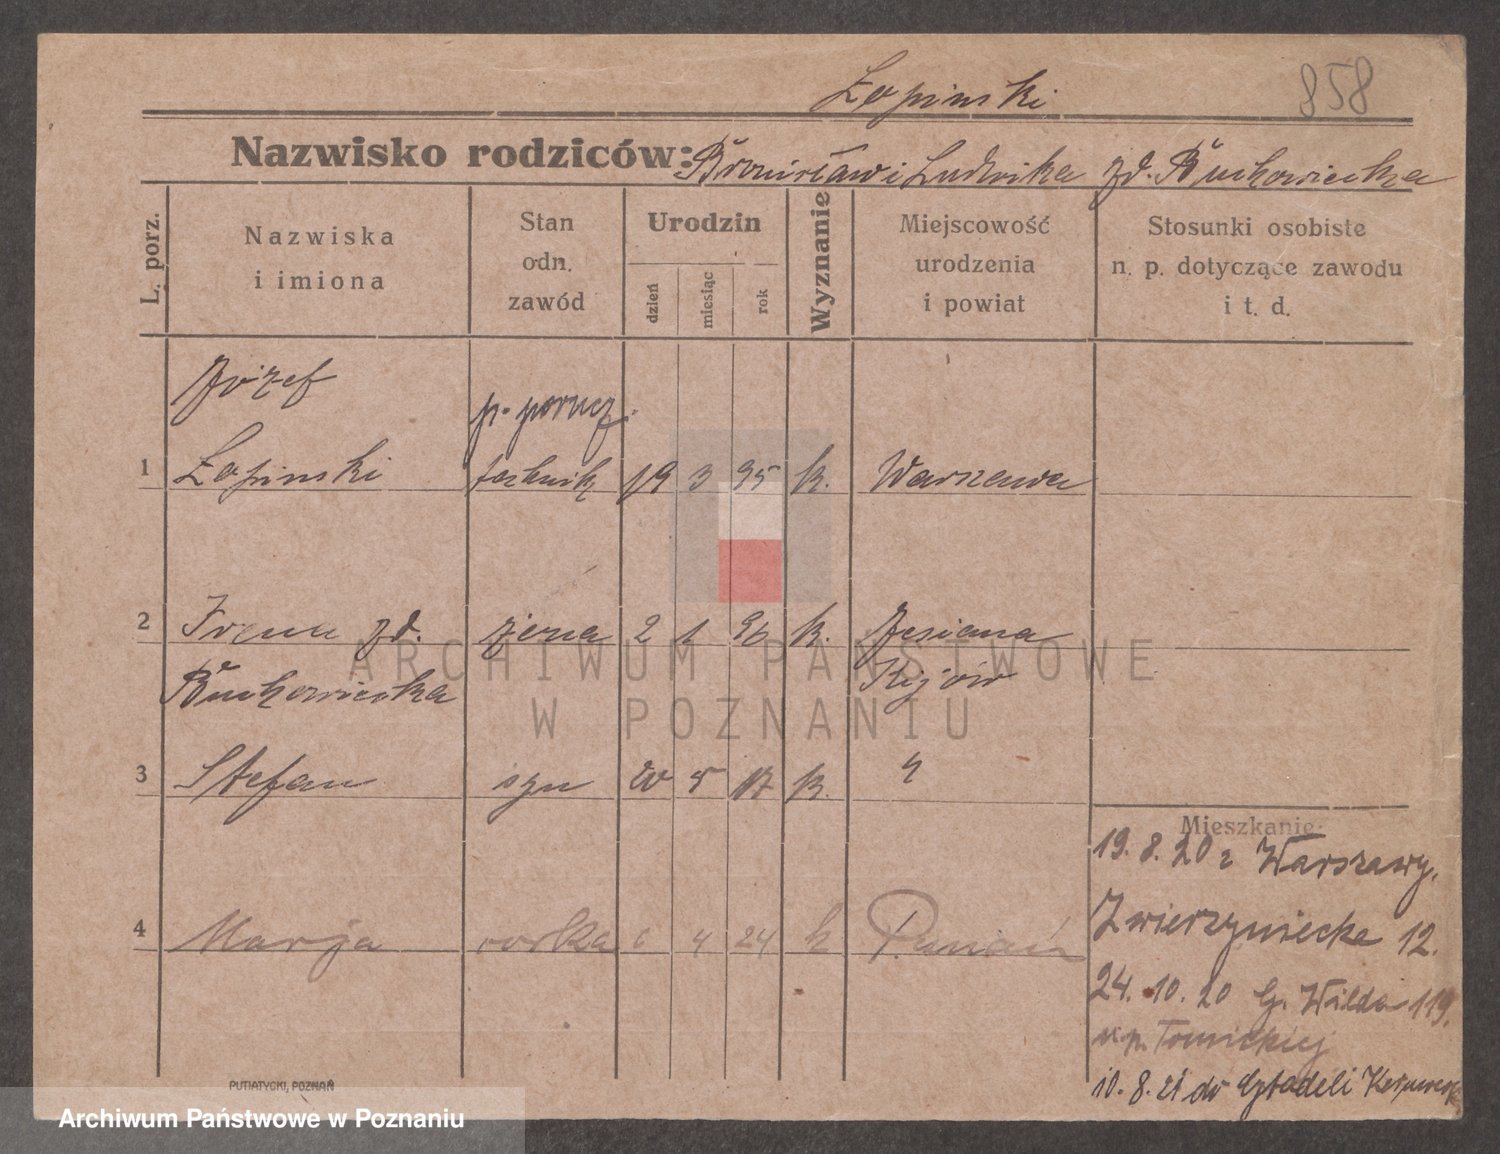 Łopinski
858
Nazwisko rodziców: Bronisław i Ludwika zd. Buchowiecka
L. porz.
Nazwiska
i imiona
Stan
odn.
zawód
Urodzin
dzień
miesiąc
rok
Wyznanie
Miejscowość
urodzenia
i powiat
Stosunki osobiste
n. p. dotyczące zawodu
i t. d.
Józef
p. porucz.
1 Łopinski technik 19 3 95 k. Warszawa
2 Irena zd. żona 2 1 96 k.
Buchowiecka Kijów
3 Stefan syn 20 5 17 k. "
Mieszkanie:
19. 8. 20 z Warszawy.
Zwierzyniecka 12.
4 Marja córka 6 4 24 k Poznań
24. 10. 20 G. Wilda 119.
u p. Tomickiej
10. 8. 21 do Cytadeli
PUTIATYCKI, POZNAŃ
ARCHIWUM PAŃSTWOWE
W POZNANIU
Archiwum Państwowe w Poznaniu